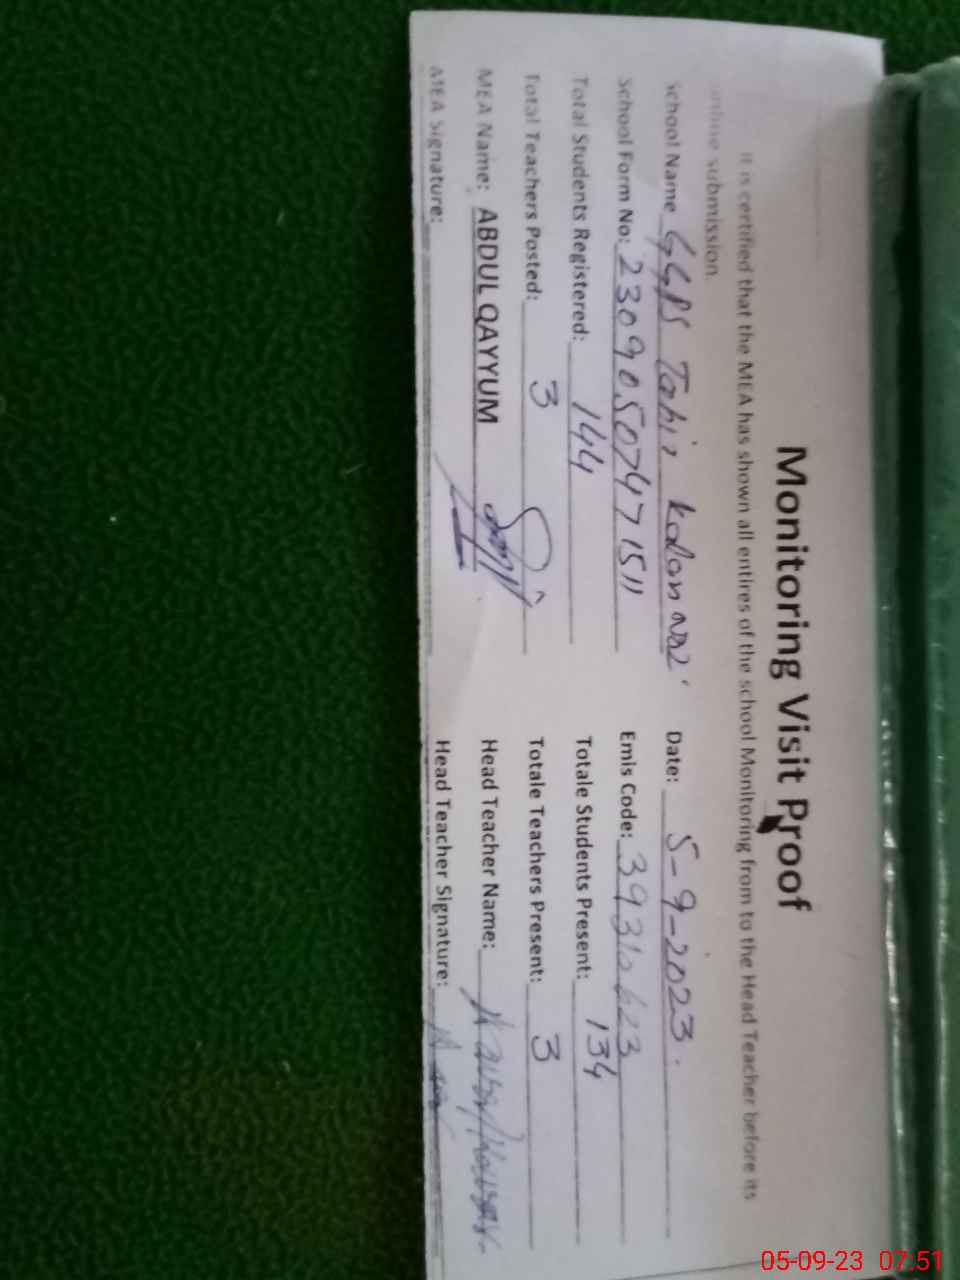 Monitoring Visit Proof
it is certified that the MEA has shown all entires of the school Monitoring from to the Head Teacher before its
online submission.
School Name GGPS Tahir Date: 5-9-2023.
School Form No: Emis Code:
Total Students Registered: 144 Totale Students Present: 134
Total Teachers Posted: 3 Totale Teachers Present: 3
MEA Name: ABDUL QAYYUM Head Teacher Name:
MEA Signature: Head Teacher Signature:
05-09-23 07:51